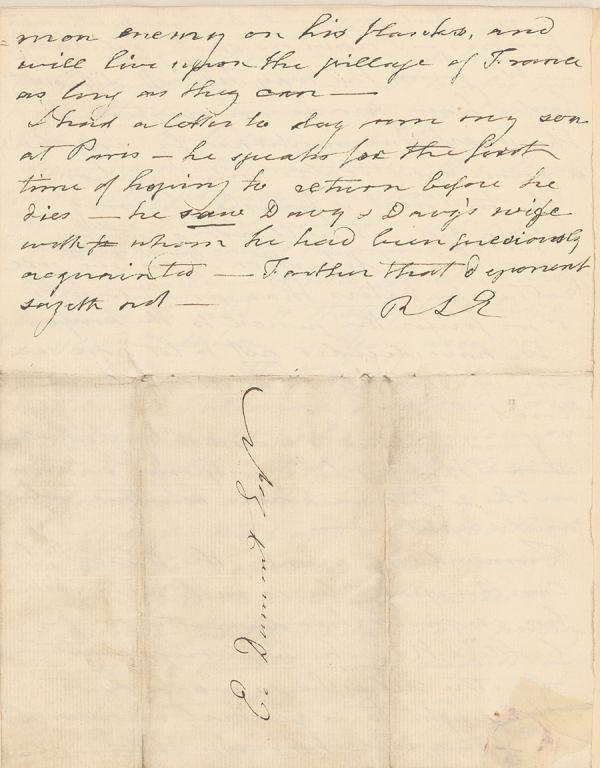 mon enemy on his flanks, and
will live upon the pillage of France
as long as they can —
I had a letter to day from my son
at Paris — he speaks for the first
time of hoping to return before he
dies — he saw Davy & Davy's wife
with whom he had been previously
acquainted — Further that deponent
sayeth not —
R L E
E. Dumont Esqr